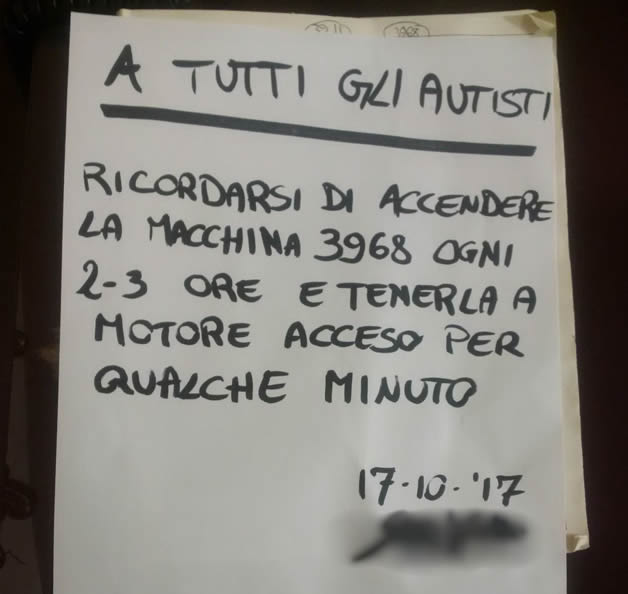 A TUTTI GLI AUTISTI
RICORDARSI DI ACCENDERE
LA MACCHINA 3968 OGNI
2-3 ORE E TENERLA A
MOTORE ACCESO PER
QUALCHE MINUTO
17-10-'17